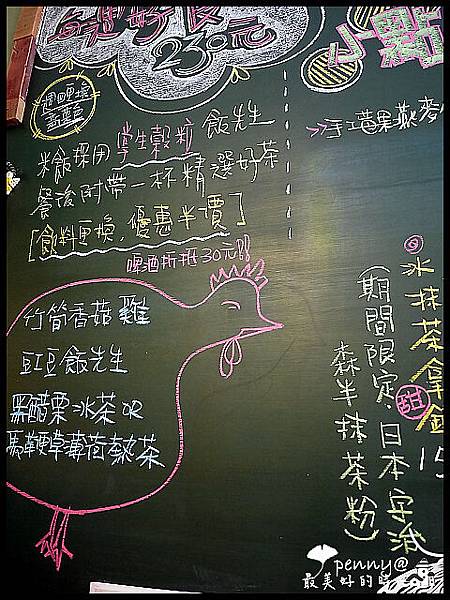 每週好食
230元
週四更換
新菜色
米飯採用掌生穀粒飯先生
餐後附帶一杯精選好茶
[飲料更換,優惠半價]
啤酒折抵30元!!
竹筒香菇雞
豇豆飯先生
黑醋栗冰茶OR
馬鞭草薄荷熱茶
小點
>>手工蘋果燕麥
冰抹茶拿鐵
甜
15
(期間限定、日本宇治
森半抹茶粉)
penny@
最美好的時